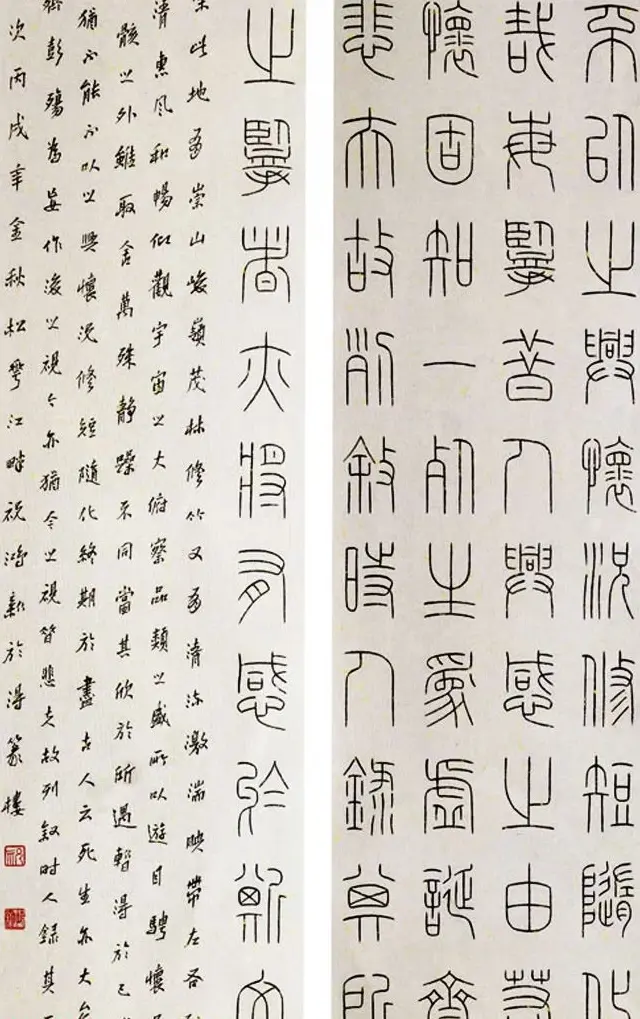 不以之興懷況修短隨化
哉每攬昔人興感之由若
懷固知一死生為虛誕齊
悲夫故列敘時人錄其所
之攬者亦將有感於斯文
此地有崇山峻嶺茂林修竹又有清流激湍映帶左右
清惠風和暢仰觀宇宙之大俯察品類之盛所以遊目騁懷
骸之外雖取舍萬殊靜躁不同當其欣於所遇暫得於己
猶不能不以之興懷況修短隨化終期於盡古人云死生亦大矣
齊彭殤為妄作後之視今亦猶今之視昔悲夫故列敘時人錄其
次丙戌年金秋松花江畔祝鴻新於得篆樓